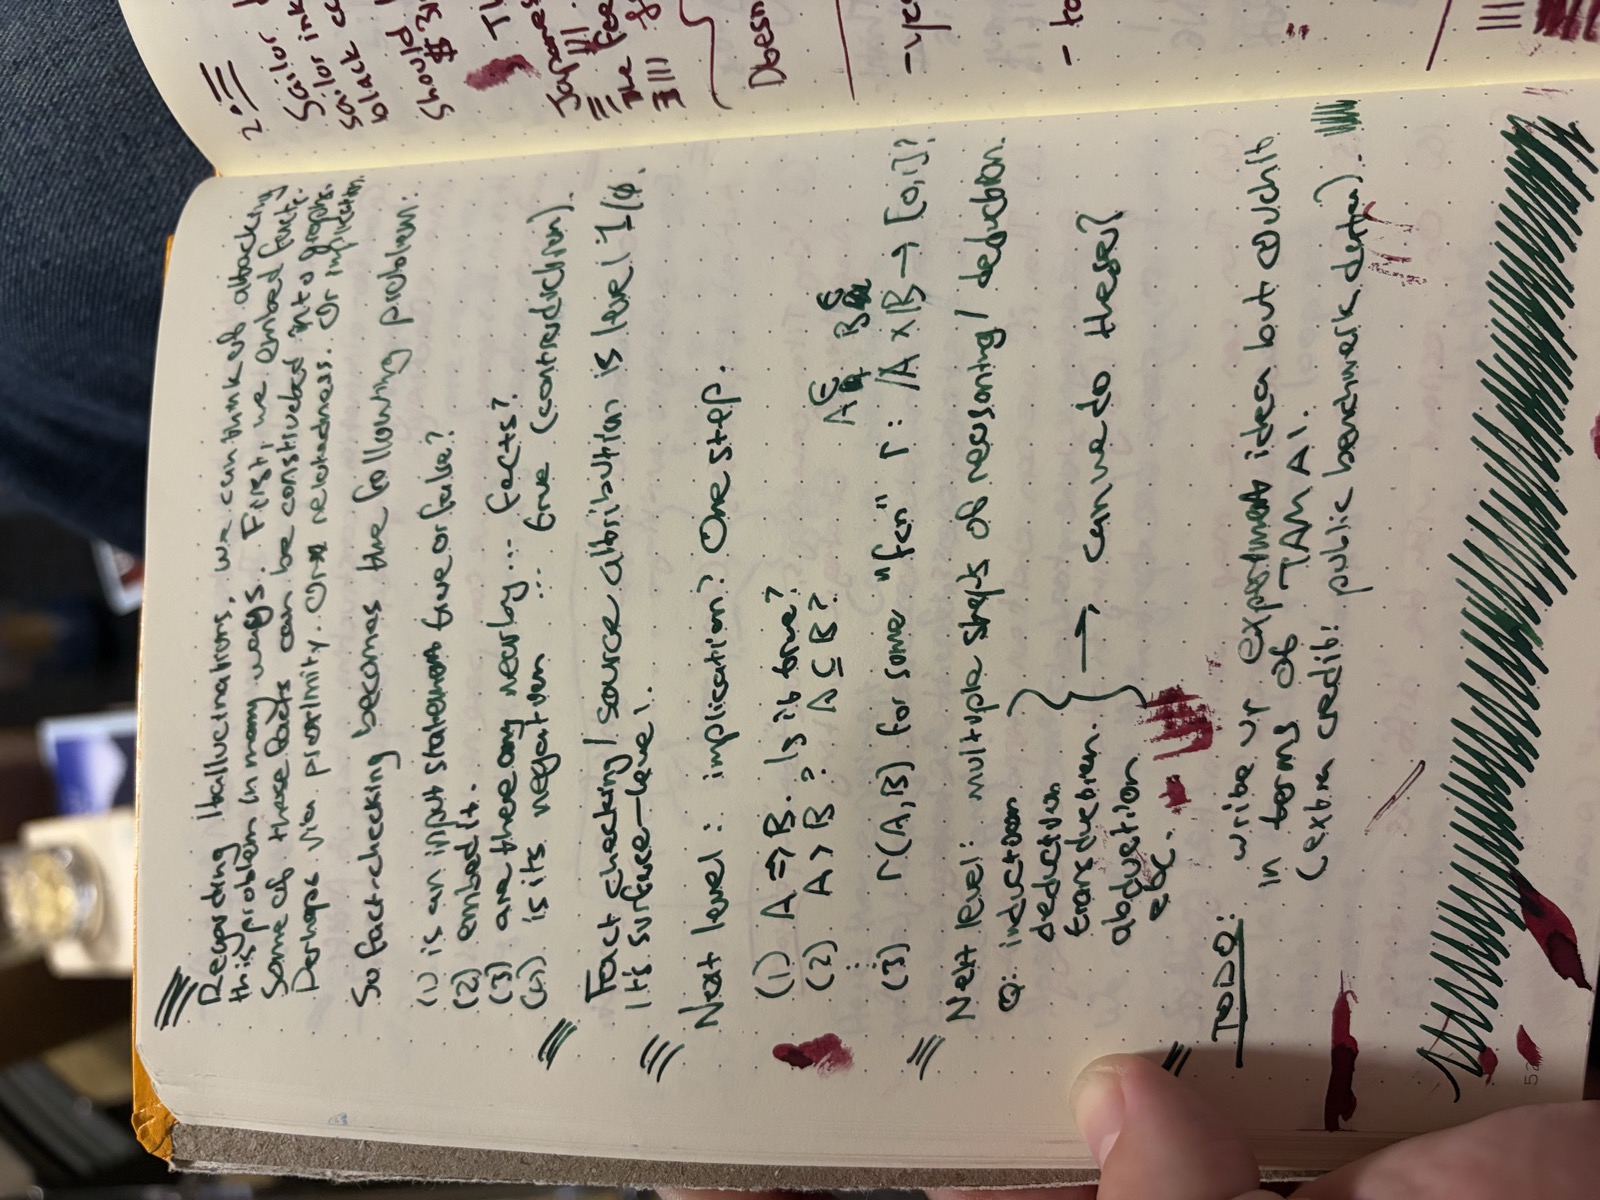 Regarding hallucinations, we can think of attacking
this problem in many ways. First, we embed facts.
Some of these facts can be constructed into graphs.
Perhaps via proximity. Or relatedness. Or implication.
So fact-checking becomes the following problem.
(1) is an input statement true or false?
(2) embed it.
(3) are there any nearby ... facts?
(4) is its negation ... true (contradiction).
Fact checking / source attribution is level 1/0.
It's surface-level.
Next level: implication? One step.
(1) A ⇒ B. Is it true?
(2) A > B? A ⊆ B?
⋮
A ∈ B ∈
(3) r(A,B) for some "fcn" r: A × B → [0,1]?
Next level: multiple steps of reasoning / deduction.
Q: induction
deduction
transduction.
abduction
etc.
→ can we do these?
TODO: write up experiment idea but couch it
in terms of TAM AI.
(extra credit: public benchmark defn).
52
2.
Sailor
Sailor ink
black
Should
$
The
Doesn